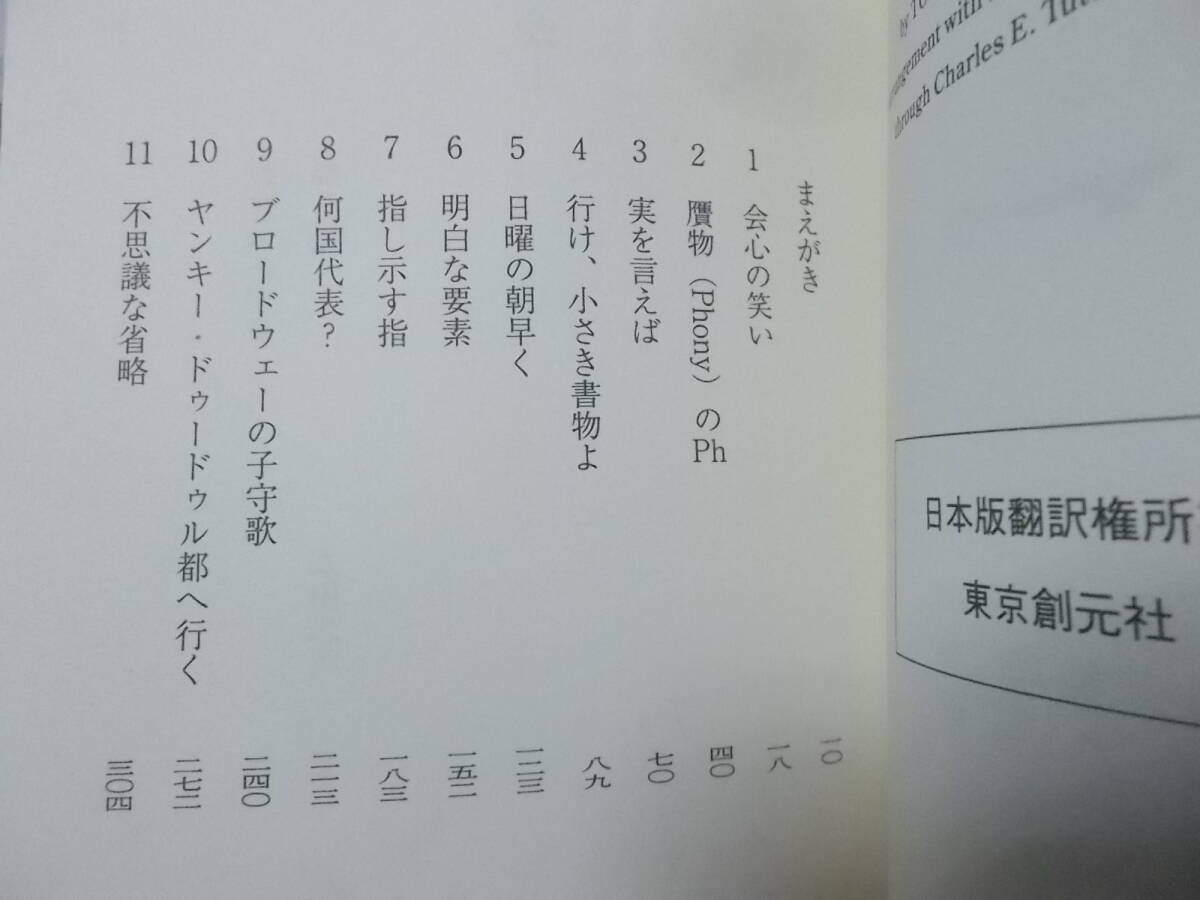 by
arrangement with
through Charles E.
日本版翻訳権所
東京創元社
まえがき 一〇
1 会心の笑い 一八
2 贋物（Phony）のPh 四〇
3 実を言えば 七〇
4 行け、小さき書物よ 八九
5 日曜の朝早く 一二三
6 明白な要素 一五二
7 指し示す指 一八三
8 何国代表？ 二一三
9 ブロードウェーの子守歌 二四〇
10 ヤンキー・ドゥードゥル都へ行く 二七二
11 不思議な省略 三〇四